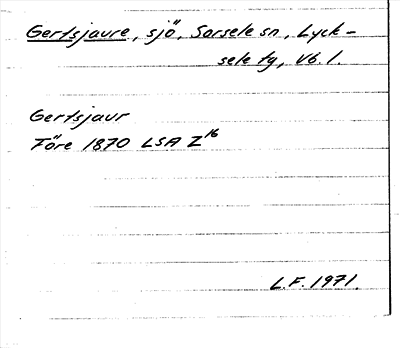 Gertsjaure, sjö, Sorsele sn, Lyck-
sele tg, Vb. l.
Gertsjaur
Före 1870 LSA Z16
L.F. 1971.